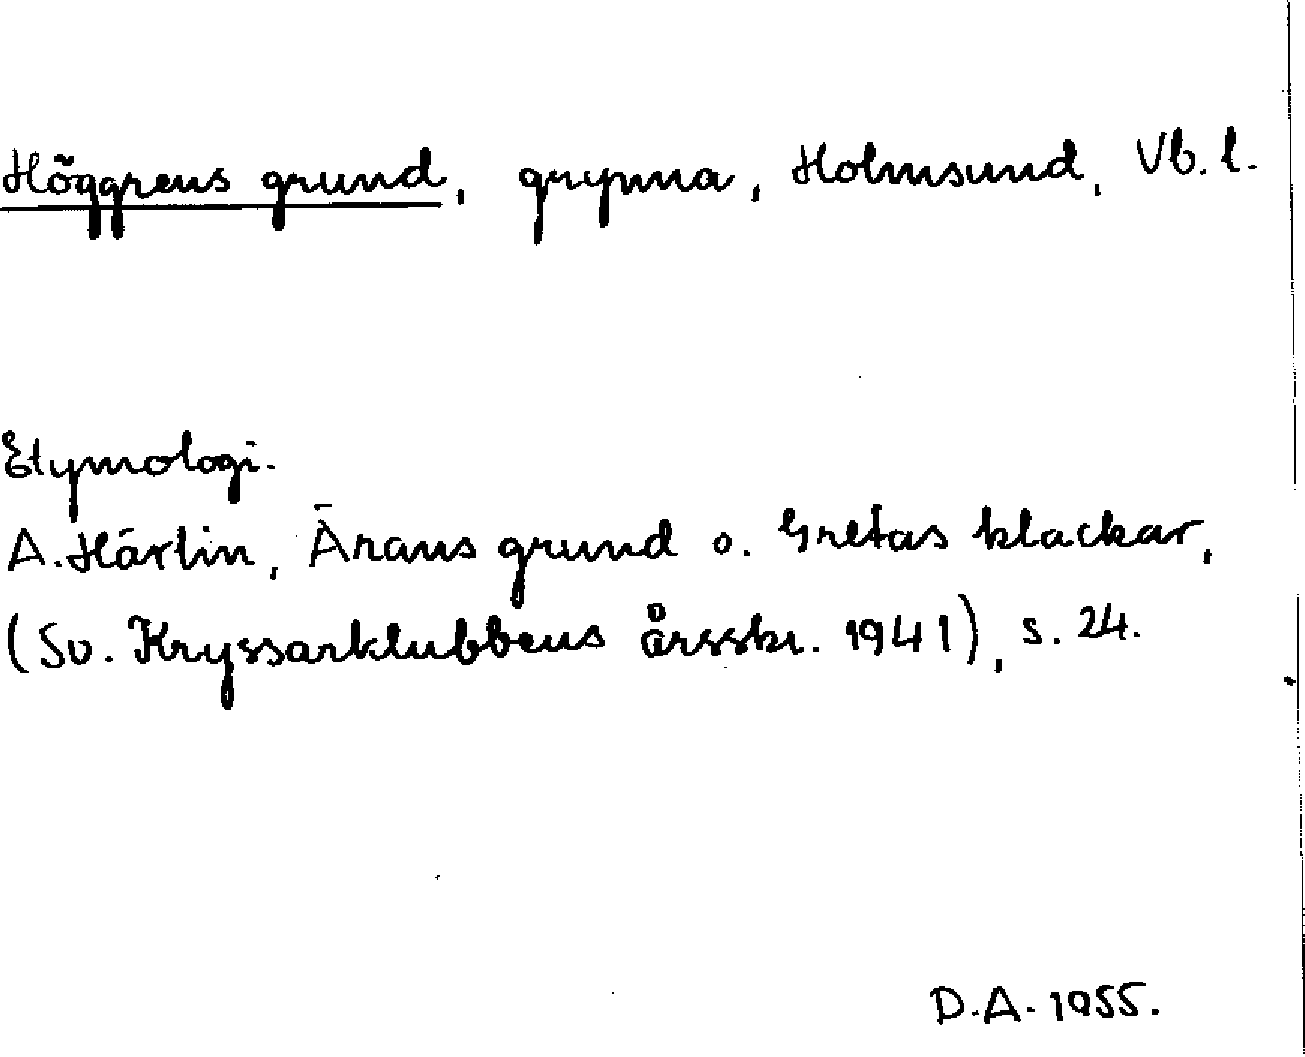 Höggrens grund, grynna, Holmsund, Vb. l.
Etymologi.
A. Härlin, Ärans grund o. Gretas klackar,
(Sv. Kryssarklubbens årsskr. 1941), s. 24.
D.A. 1955.